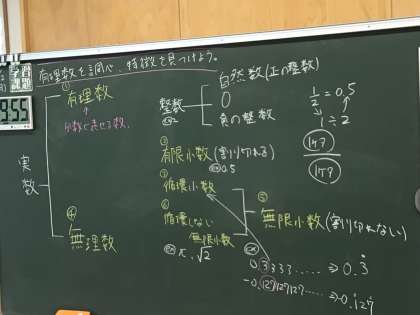 学習課題
有理数を調べ、特徴を見つけよう。
9:55
実数
① 有理数
分数で表せる数。
④ 無理数
整数
自然数(正の整数)
0
負の整数
② 有限小数(割り切れる)
例 0.5
③ 循環小数
⑥ 循環しない
無限小数
例 π、√2
⑤ 無限小数(割り切れない)
例 0.3333……⇒0.3̇
-0.127127127……⇒-0.1̇27̇
1/2=0.5
1÷2